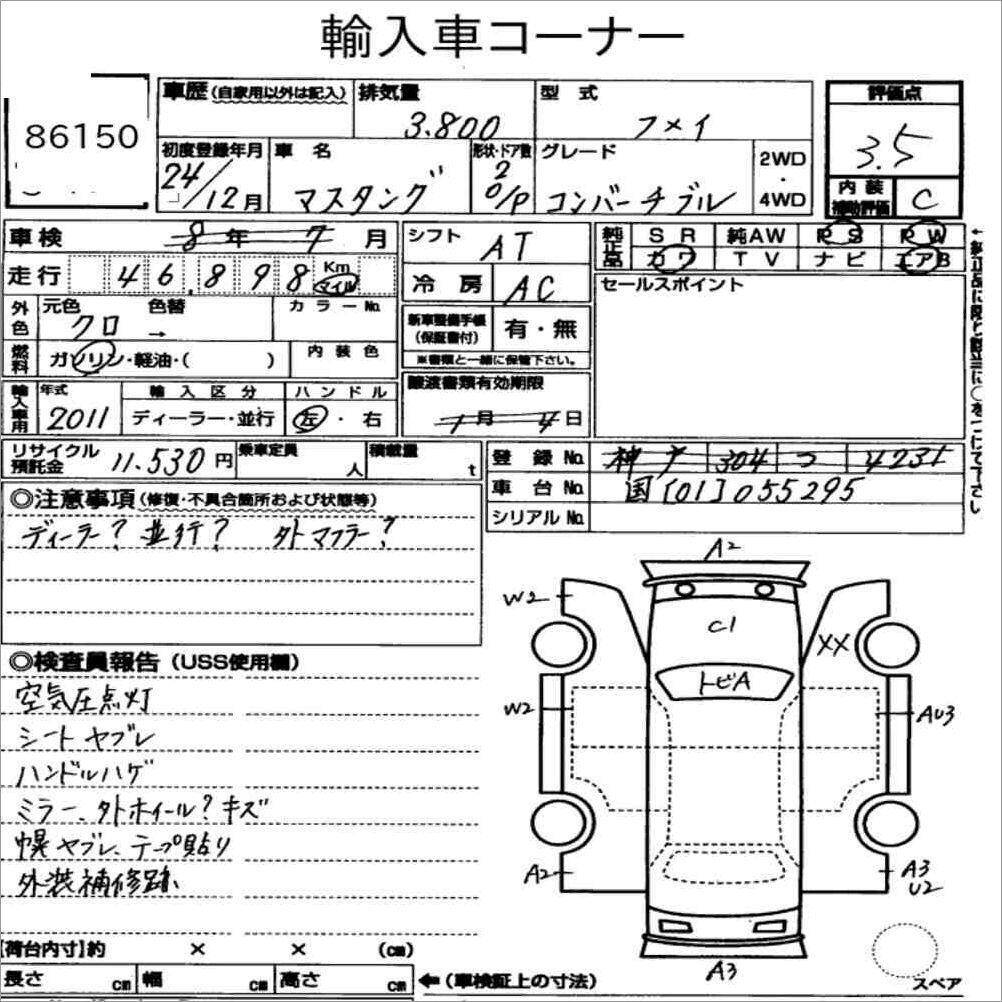 輸入車コーナー
86150
車歴(自家用以外は記入)
排気量 3.800
型式 フメイ
評価点 3.5
内装補助評価 C
初度登録年月 24/12月
車名 マスタング
形状・ドア数 2 O/P
グレード コンバーチブル
2WD・4WD
車検 8年7月
走行 46.898 Km マイル
外色 元色 クロ → 色替
カラーNo.
燃料 ガソリン・軽油・( )
内装色
輸入車用 年式 2011
輸入区分 ディーラー・並行
ハンドル 左・右
シフト AT
冷房 AC
新車整備手帳(保証書付) 有・無
※書類と一緒に保管下さい。
譲渡書類有効期限
1月4日
純正 SR 純AW PS PW
カワ TV ナビ エアB
セールスポイント
リサイクル預託金 11.530円
乗車定員 人
積載量 t
登録No. 神戸 304 つ 4231
車台No. 国[01]055295
シリアルNo.
◎注意事項(修復・不具合箇所および状態等)
ディーラー? 並行? 外マフラー?
◎検査員報告(USS使用欄)
空気圧点灯
シートヤブレ
ハンドルハゲ
ミラー、外ホイール? キズ
幌ヤブレ、テープ貼り
外装補修跡
A2
W2
C1
XX
トビA
W2
AU3
A2
A3
U2
A3
スペア
【荷台内寸】約 × × (cm)
長さ cm 幅 cm 高さ cm
←(車検証上の寸法)